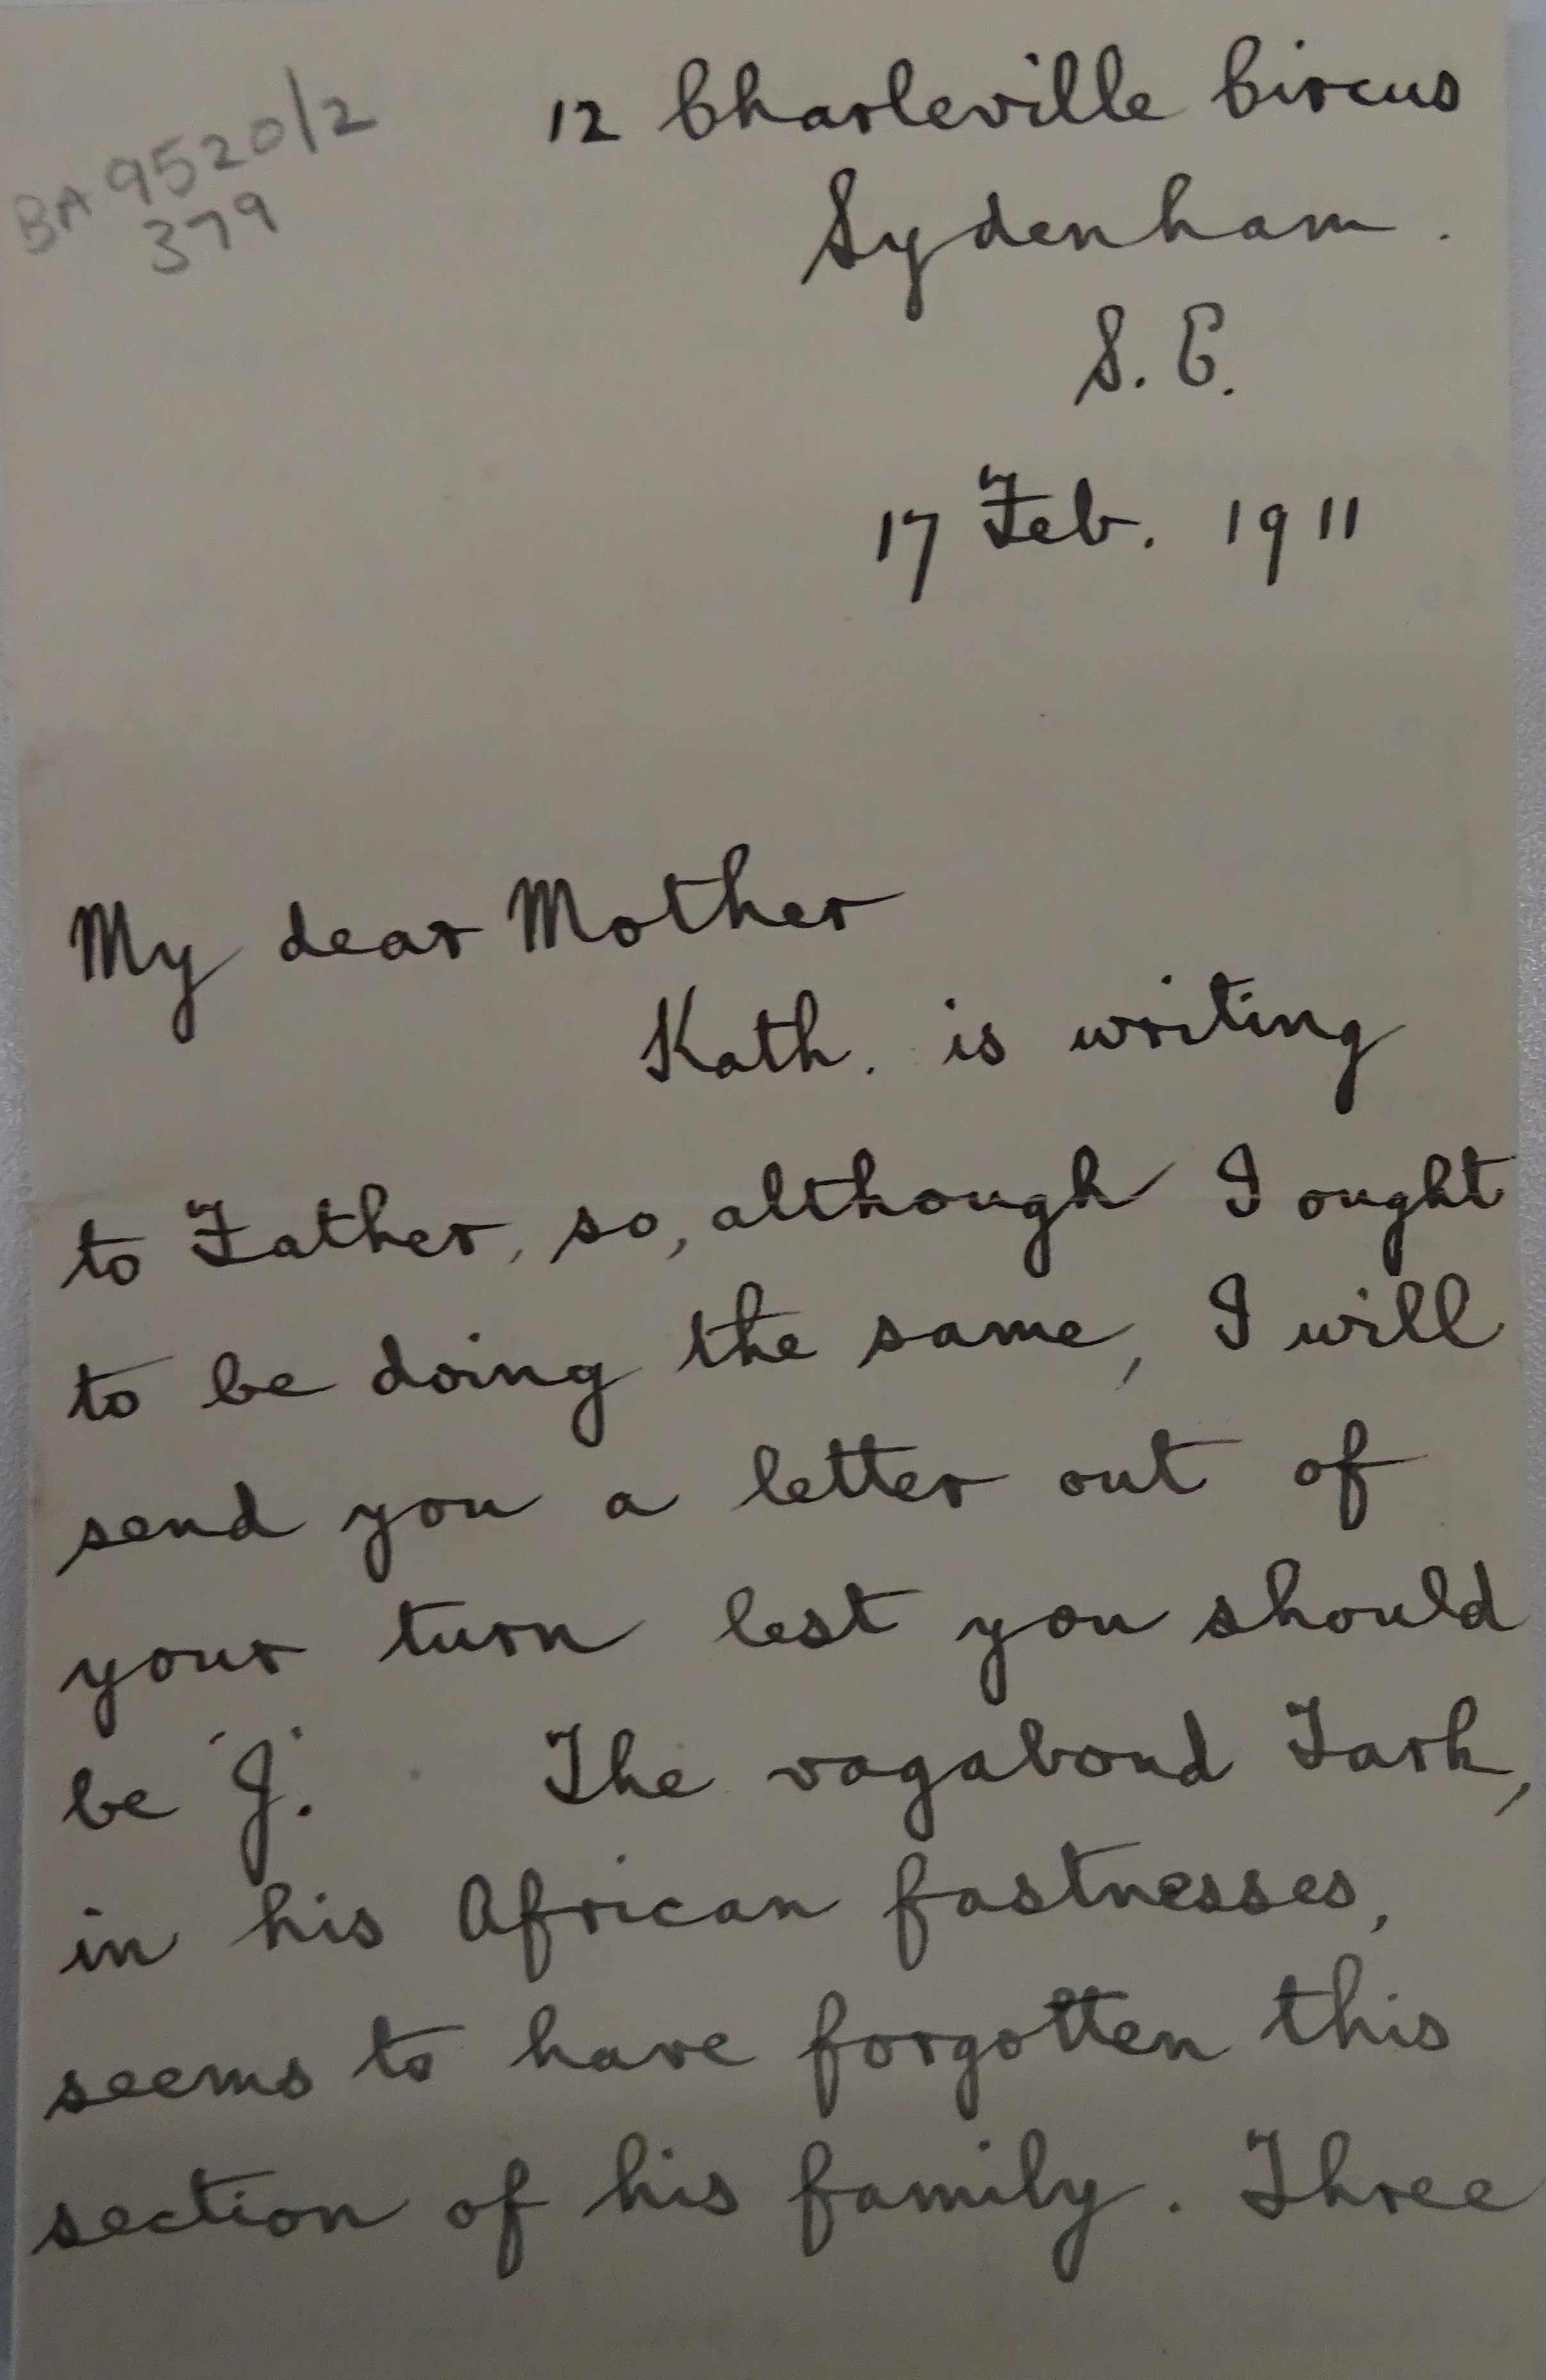 BA 9520/2
379
12 Charleville Circus
Sydenham.
S. E.
17 Feb. 1911
My dear Mother
Kath. is writing
to Father, so, although I ought
to be doing the same, I will
send you a letter out of
your turn lest you should
be 'J'. The vagabond Tark,
in his African fastnesses,
seems to have forgotten this
section of his family. Three